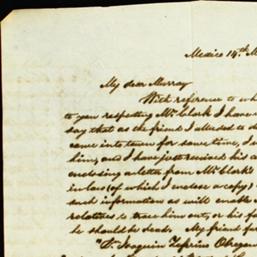 Mexico 14th M
My dear Murray
With reference to wh
to you respecting Mr. Clark I have
say that as the friend I alluded to d
came into town for some time, I
him, and I have just received his
enclosing a letter from Mr. Clark's
in law (of which I enclose a copy)
such information as will enable
relatives to trace him out, or his fa
he should be dead. My friend
"Dn. Joaquin Obregon